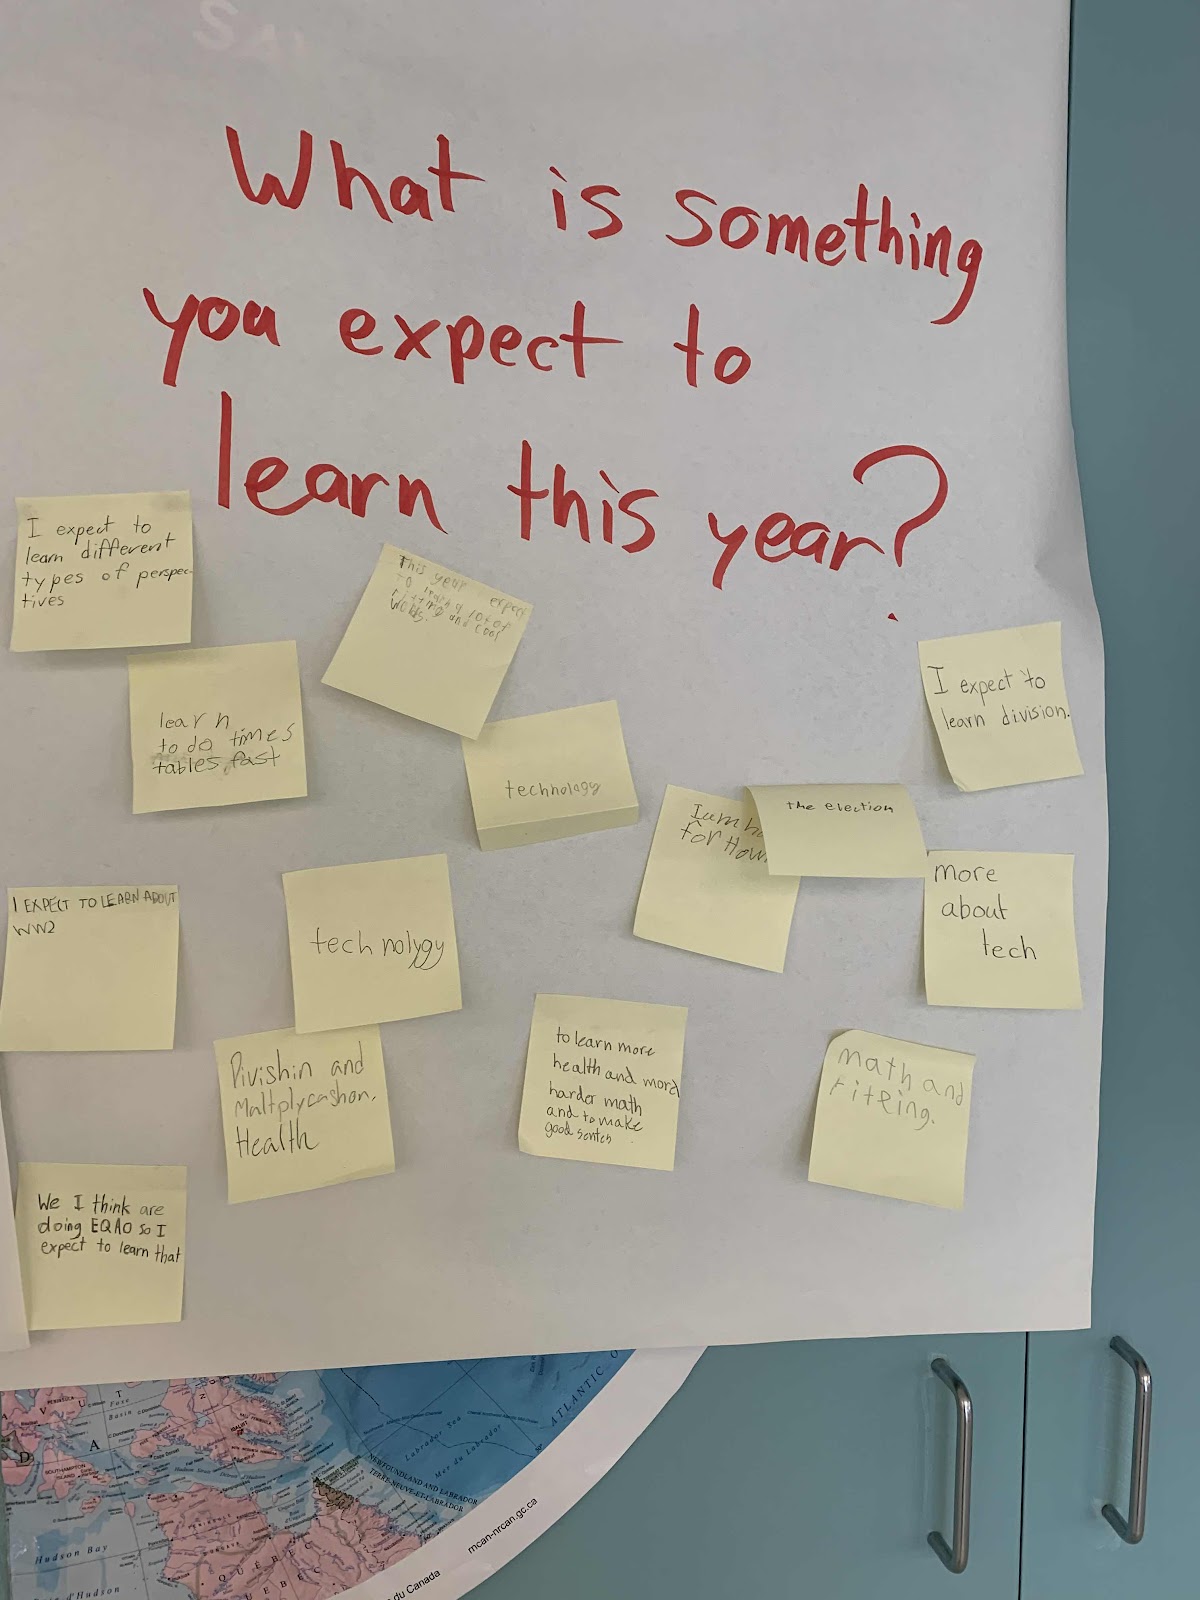 What is something
you expect to
learn this year?
I expect to
learn different
types of perspec
tives
This year expect
to learn a lot of
and cool
words.
learn
to do times
tables fast
technology
I expect to
learn division.
the election
I am
for How
more
about
tech
I EXPECT TO LEARN ABOUT
WW2
technolygy
Divishin and
Maltplycashon.
Health
to learn more
health and more
harder math
and to make
good sentes
math and
We I think are
doing EQAO so I
expect to learn that
Hudson Bay
Baie d'Hudson
QUÉBEC
QUEBEC
Labrador Sea
Mer du Labrador
ATLANTIC O
NEWFOUNDLAND AND LABRADOR
TERRE-NEUVE-ET-LABRADOR
mcan-nrcan.gc.ca
du Canada